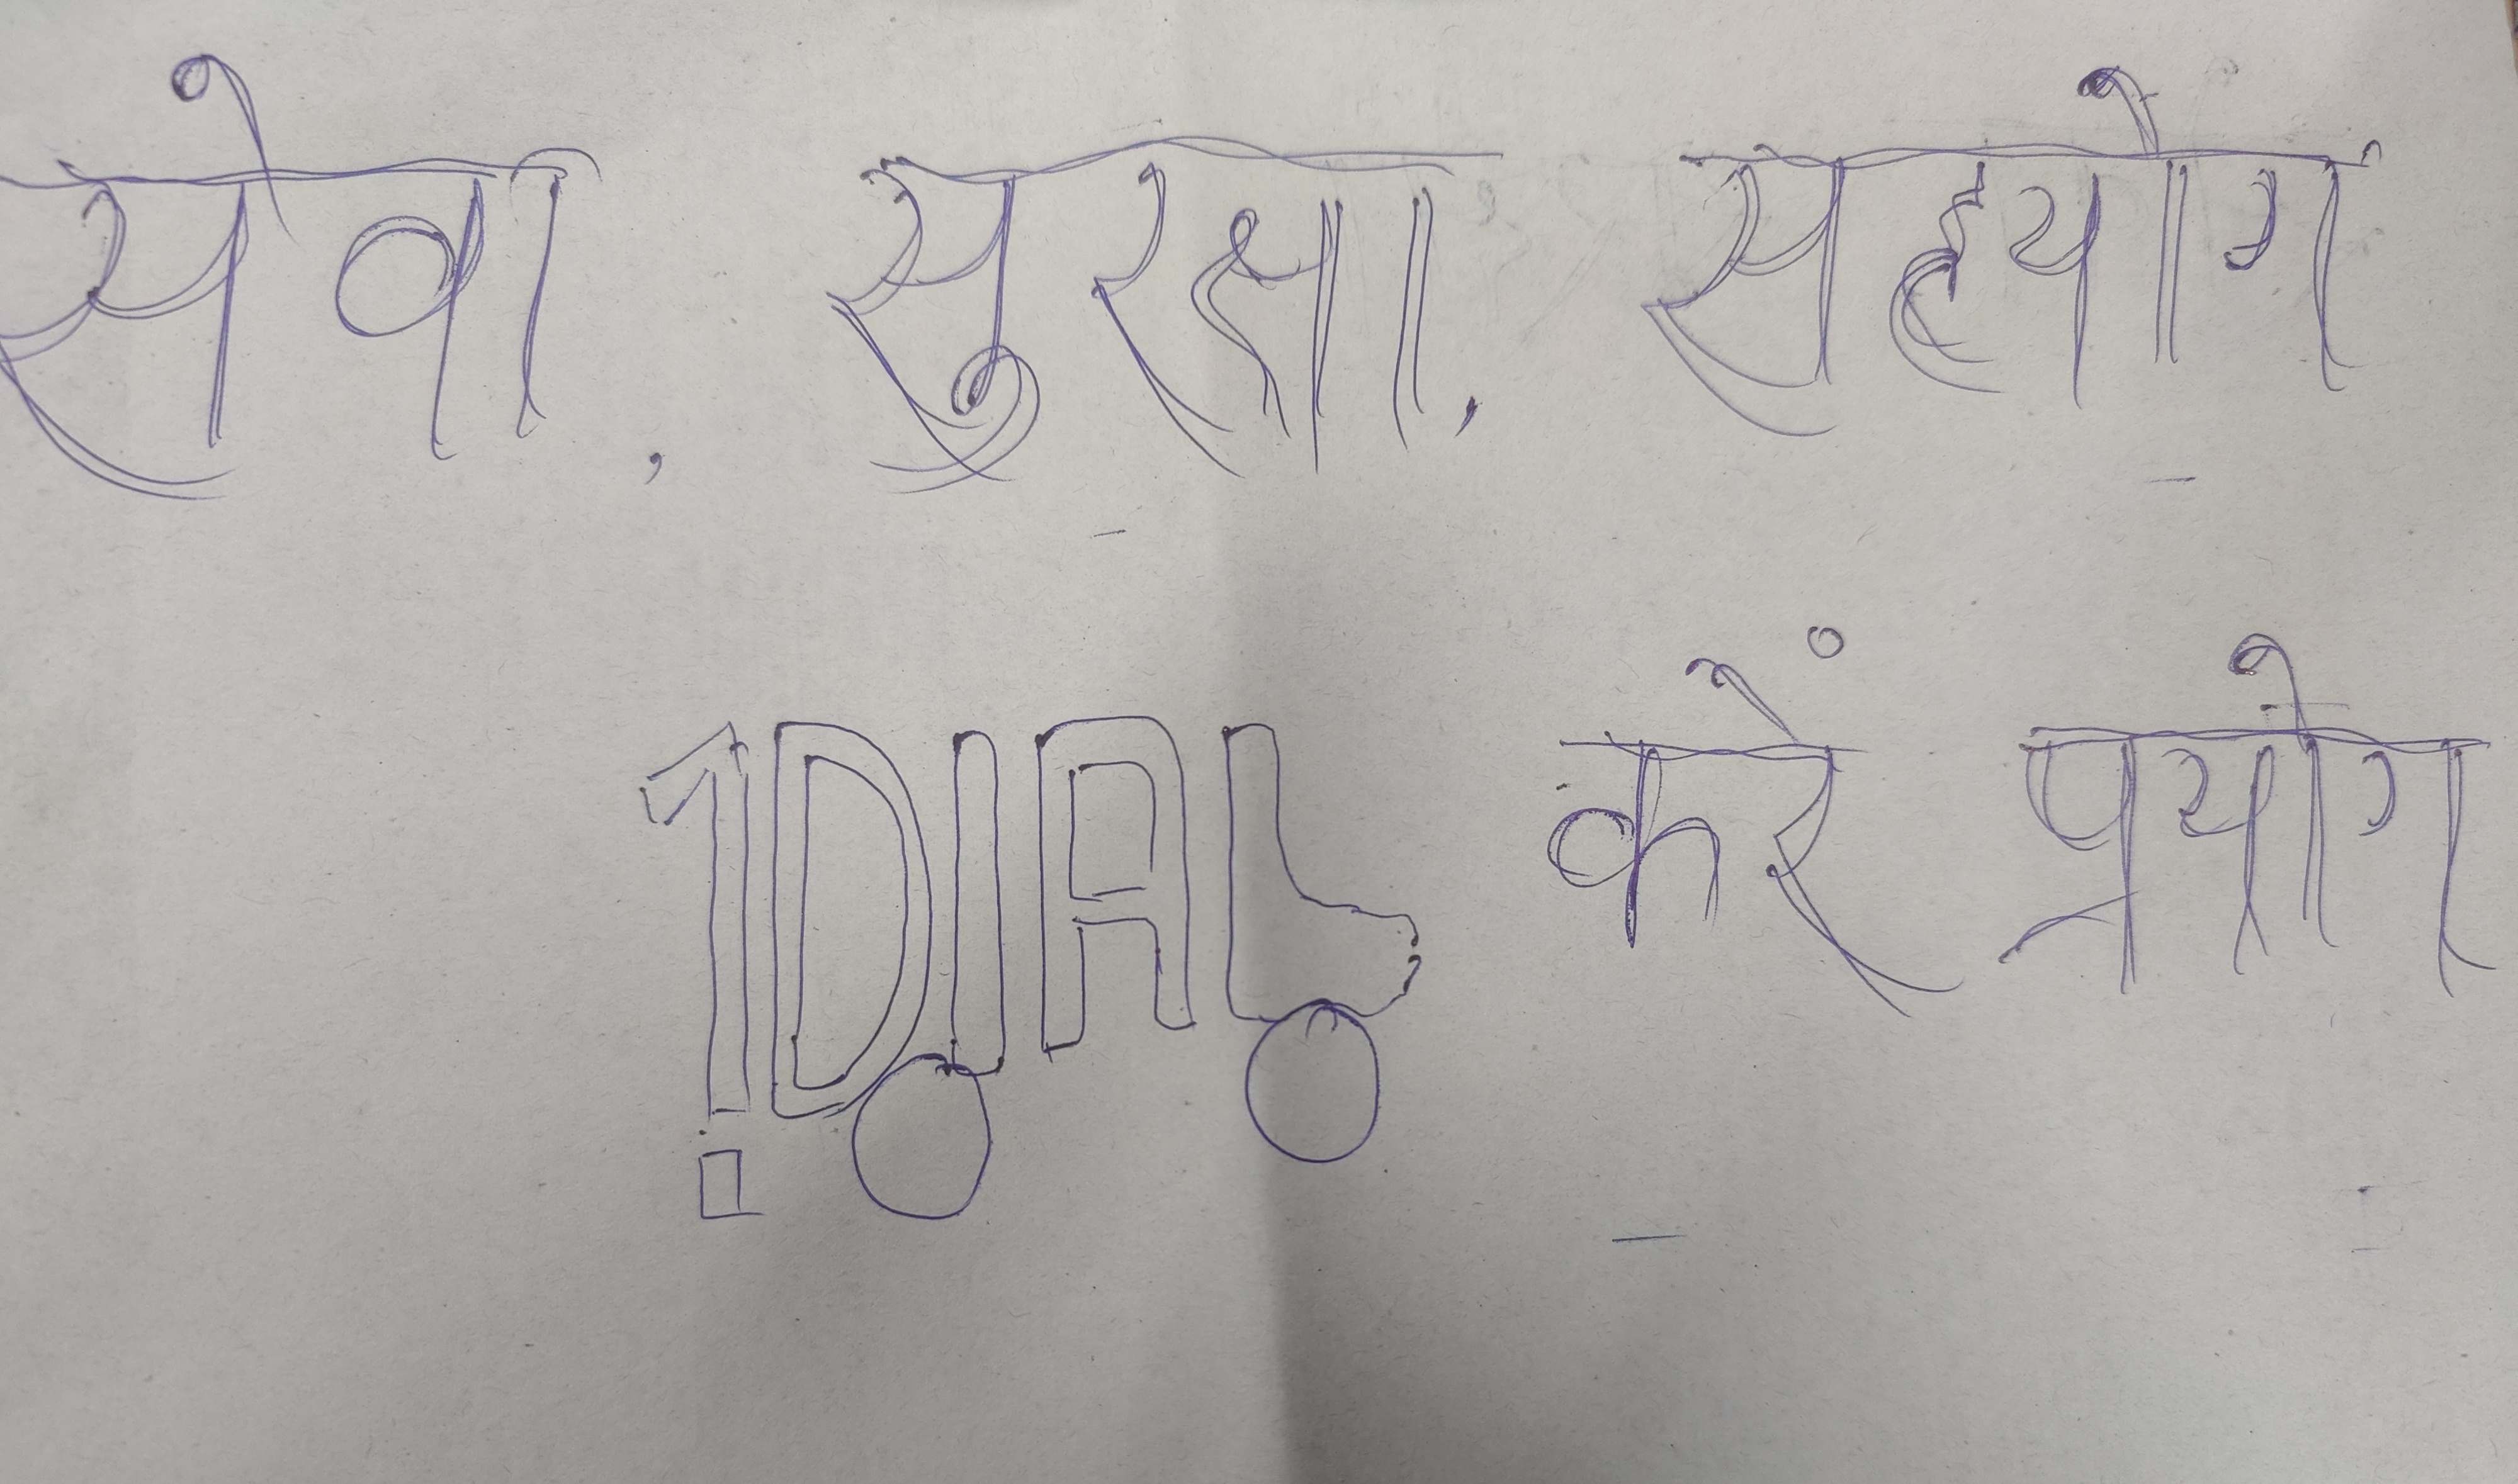 सेवा, सुरक्षा, सहयोग
1DIAL करें प्रयोग